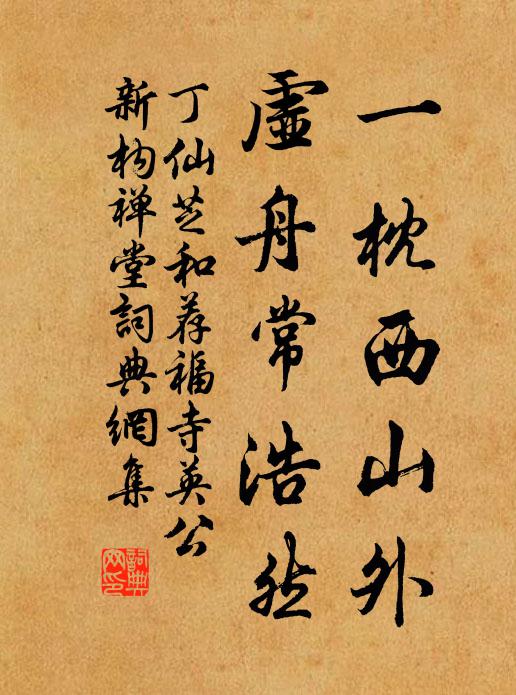 一枕西山外
虛舟常浩然
丁仙芝和荐福寺英公
新构禅堂詞典網集
詞典
网印